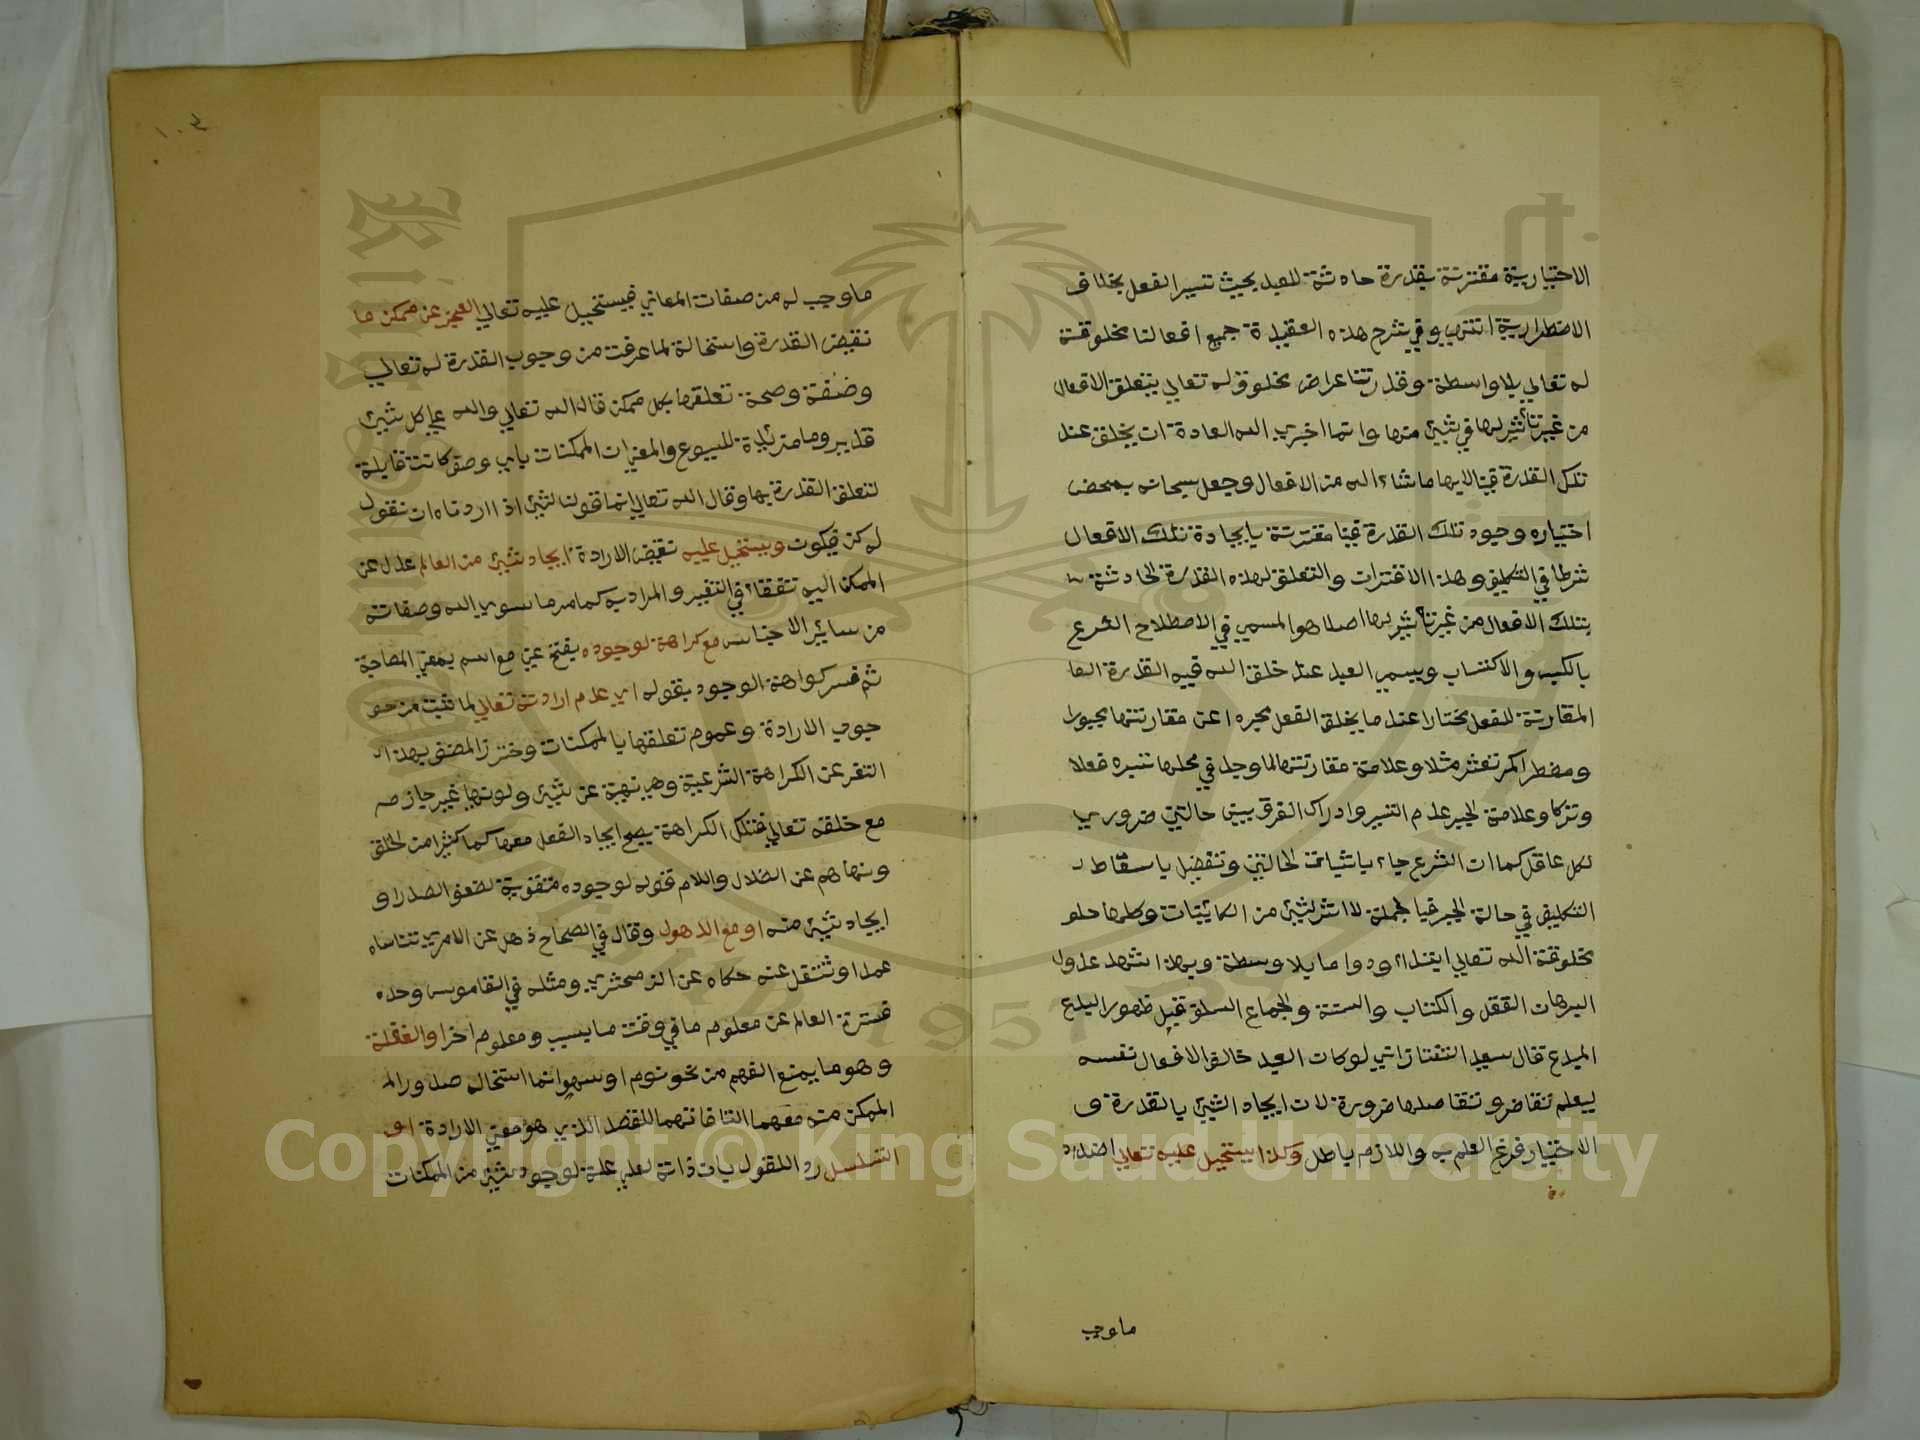 الاختيارية مقترنة بقدرة حادثة للعبد بحيث تتيسر الفعل بخلاف
الاضطرارية انتهي وفي شرح هذه العقيدة جميع افعالنا مخلوقة
له تعالي بلا واسطة وقدرتنا عراض مخلوق له تعالي يتعلق الافعال
من غير تأثير لها في شيئ منها وانما اجري الله العادة ان يخلق عند
تلك القدرة قبالايها ماشاء الله من الافعال وجعل سبحانه بمحض
اختياره وجود تلك القدرة فينا مقترنة بايجادة تلك الافعال
شرطا في التكليف وهذا الاقتران والتعلق لهذه القدرة الحادثة
بتلك الافعال من غير تأثير لها اصلا هو المسمي في الاصطلاح الشرع
بالكسب والاكتساب ويسمي العبد عند خلق الله فيه القدرة الما
المقارنة للفعل مختارا عندما يخلق الفعل مجردا عن مقارنتها مجبورا
ومضطرا كمرتعش مثلا وعلامة مقارنتها لما وجد في محلها تيسره فعلا
وتركا وعلامة الجبر عدم التيسر وادراك الفرق بين حالتين ضروري
لكل عاقل كما ان الشرع جاء باثبات الحالتين وتفضل باسقاط
التكليف في حالة الجبر فبالجملة لا اثر لشيئ من الكائنات وكلها حلو
مخلوقة الله تعالي ابتداء ودواما بلا وسطة وبهذا اشهد عدول
البرهان العقل والكتاب والسنة والجماع السلف قبل ظهور البدع
المبدع قال سعد التفتازاني لو كان العبد خالق الافعال نفسه
ليعلم تفاصلها ضرورة لان ايجاد الشيئ بالقدرة و
الاختيار فرع العلم به واللازم باطل وكذا يستحيل عليه تعالي اضداد
ماوجب
١٠٤
ماوجب له من صفات المعاني فيستحيل عليه تعالي العجز عن ممكن ما
نقيض القدرة واستحالة لما عرفت من وجوب القدرة له تعالي
وصحة تعلقها بكل ممكن قال الله تعالي والله علي كل شيئ
قدير وما مزيدة للشيوع والمعني ان الممكنات باي وصف كانت قابلة
لتعلق القدرة بها وقال الله تعالي انما قولنا لشيئ اذا اردناه ان نقول
له كن فيكون ويستحيل عليه نقيض الارادة ايجاد شيئ من العالم عدل عن
الممكن اليه تفننا في التعبير والمراد به كما مر ما سوي الله وصفاته
من سائر الاجناس مع كراهة لوجوده بفتح عين مع اسم بمعني المصاحبة
ثم فسر كراهة الوجود بقوله اي عدم ارادته تعالي لما ثبت من
جوب الارادة وعموم تعلقها بالممكنات وحترز المصنف بهذا
التفر عن الكراهة الشرعية وهي نهية عن شيئ ولونهيا غير جازمه
مع خلقه تعالي فتلك الكراهة يصح ايجاد الفعل معها كما كثيرا من الخلق
ونهاهم عن الضلال واللام قوله لوجوده متقوية لضعف المصدر او
ايجاد شيئ منه او مع الذهول وقال في الصحاح ذهل عن الامر تناساه
عمدا او شغل عنه حكاه عن الزمحشري ومثله في القاموس وحده
فترة العالم عن معلوم ما في وقت ما بسبب ومعلوم اخر او الغفلة
وهو ما يمنع الفهم من نحو نوم او سهو انما استحال صدور الم
الممكن منه معهما لتنافاتهما للقصد الذي هو معني الارادة او
التسلسل رد اللقول بان ذاته تعلي علة لوجود شيئ من الممكنات